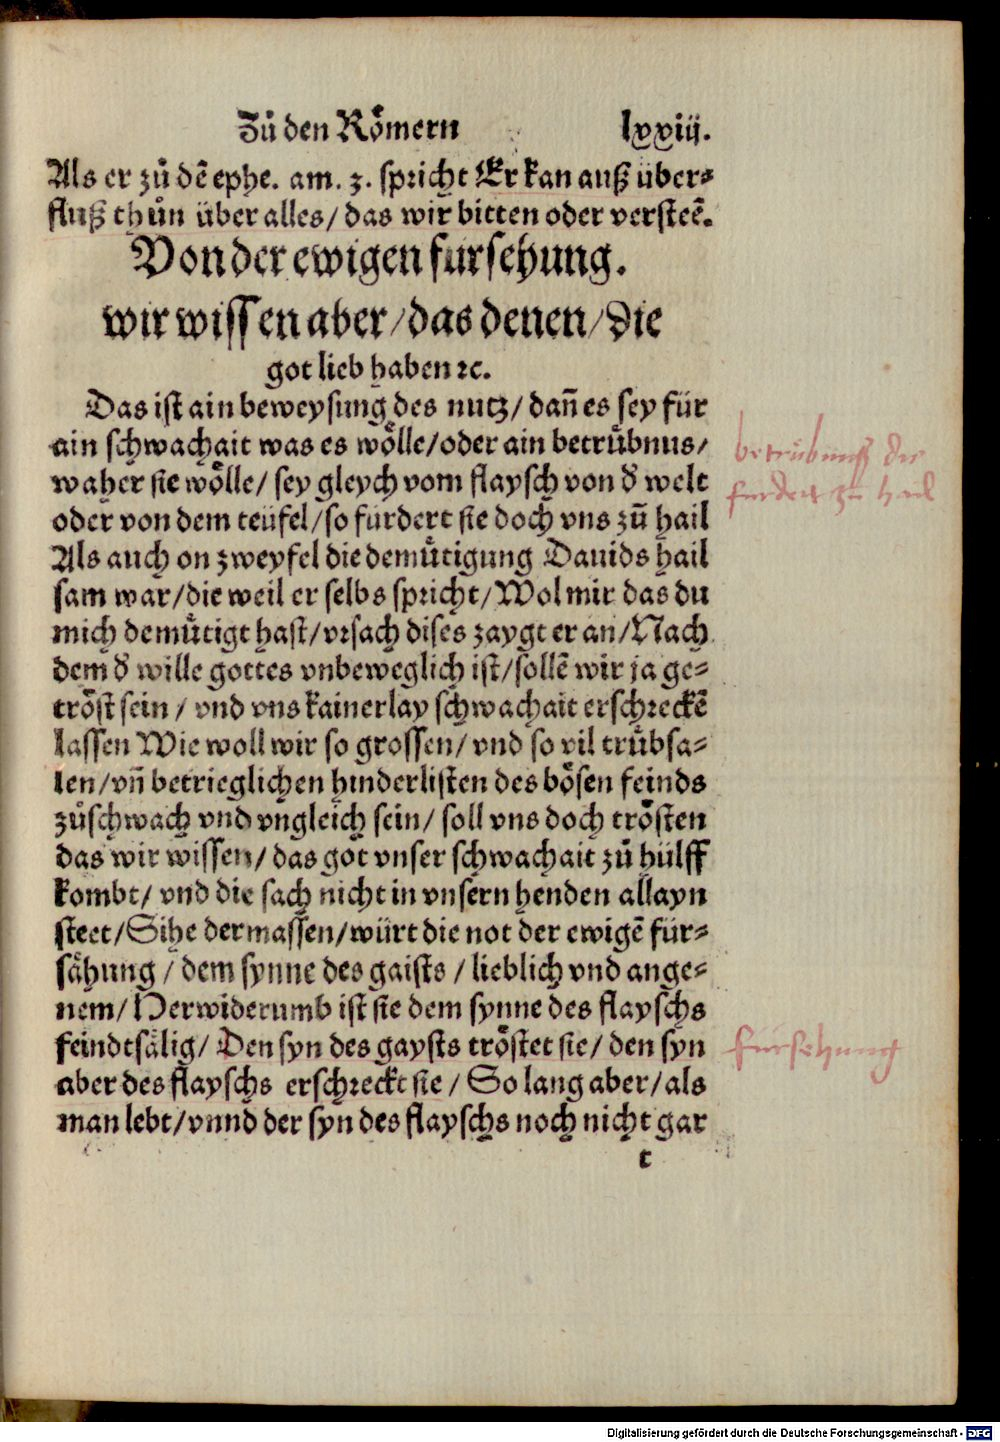 Zů den Rômern lxxiij.
Als er zů dē ephe. am. 3. spricht Er kan auß über⸗
fluß thůn über alles/ das wir bitten oder versteē.
Von der ewigen fürsehung.
wir wissen aber/das denen/die
got lieb haben ꝛc.
Das ist ain beweysung des nutz/ dañ es sey für
ain schwachait was es wôlle/oder ain betrůbnus/
waher sie wôlle/ sey gleych vom flaysch von đ welt
oder von dem teüfel/so fürdert sie doch vns zů hail
Als auch on zweyfel die demůtigung Dauids hail
sam war/die weil er selbs spricht/Wol mir das du
mich demůtigt hast/vrsach dises zaygt er an/Nach
dem đ wille gottes vnbeweglich ist/sollē wir ja ge⸗
trôst sein / vnd vns kainerlay schwachait erschreckē
lassen Wie woll wir so grossen/ vnd so vil trůbsa⸗
len/vñ betrieglichen hinderlisten des bôsen feinds
zůschwach vnd vngleich sein/ soll vns doch trôsten
das wir wissen/das got vnser schwachait zů hülff
kombt/ vnd die sach nicht in vnsern henden allayn
steet/Sihe dermassen/würt die not der ewigē für⸗
sähung / dem synne des gaists / lieblich vnd ange⸗
nem/Herwiderumb ist sie dem synne des flayschs
feindtsälig/ Den syn des gaysts trôstet sie/ den syn
aber des flayschs erschreckt sie/ So lang aber/als
man lebt/vnnd der syn des flayschs noch nicht gar
t
betrübnuß die
furdert zů hail
fürsehung
Digitalisierung gefördert durch die Deutsche Forschungsgemeinschaft - DFG